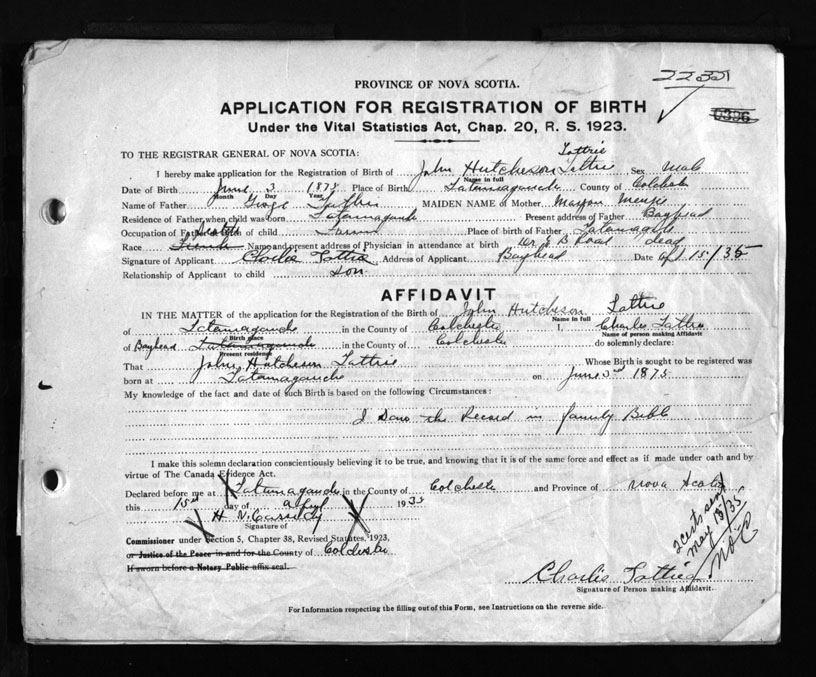 2235
PROVINCE OF NOVA SCOTIA.
APPLICATION FOR REGISTRATION OF BIRTH
Under the Vital Statistics Act, Chap. 20, R. S. 1923.
TO THE REGISTRAR GENERAL OF NOVA SCOTIA:
Tattrie
I hereby make application for the Registration of Birth of John Hutcheson Tattrie Sex Male
Name in full
Date of Birth June 3 1875 Place of Birth Tatamagouche County of Colchester
Month Day Year
Name of Father George Tattrie MAIDEN NAME of Mother
Residence of Father when child was born Tatamagouche Present address of Father Bayhead
Occupation of Father of child Farmer Place of birth of Father Tatamagouche
Race French Name and present address of Physician in attendance at birth Dr. E B Roach dead
Signature of Applicant Charlie Tattrie Address of Applicant Bayhead Date Apl 15/35
Relationship of Applicant to child Son
AFFIDAVIT
IN THE MATTER of the application for the Registration of the Birth of John Hutcheson Tattrie
Name in full
of Tatamagouche in the County of Colchester I, Charlie Tattrie
Birth place Name of person making Affidavit
of Bayhead Tatamagouche in the County of Colchester do solemnly declare:
Present residence
That John Hutcheson Tattrie Whose Birth is sought to be registered was
born at Tatamagouche on June 3rd 1875
My knowledge of the fact and date of such Birth is based on the following Circumstances:
I Saw the Record in family Bible
I make this solemn declaration conscientiously believing it to be true, and knowing that it is of the same force and effect as if made under oath and by
virtue of The Canada Evidence Act.
Declared before me at Tatamagouche in the County of Colchester and Province of Nova Scotia
this 15th day of April 1935
H N Cassidy
Signature of
Commissioner under Section 5, Chapter 38, Revised Statutes, 1923,
or Justice of the Peace in and for the County of Colchester
If sworn before a Notary Public affix seal.
2 certs sent
May 18/35
No C
Charlie Tattrie
Signature of Person making Affidavit.
For Information respecting the filling out of this Form, see Instructions on the reverse side.